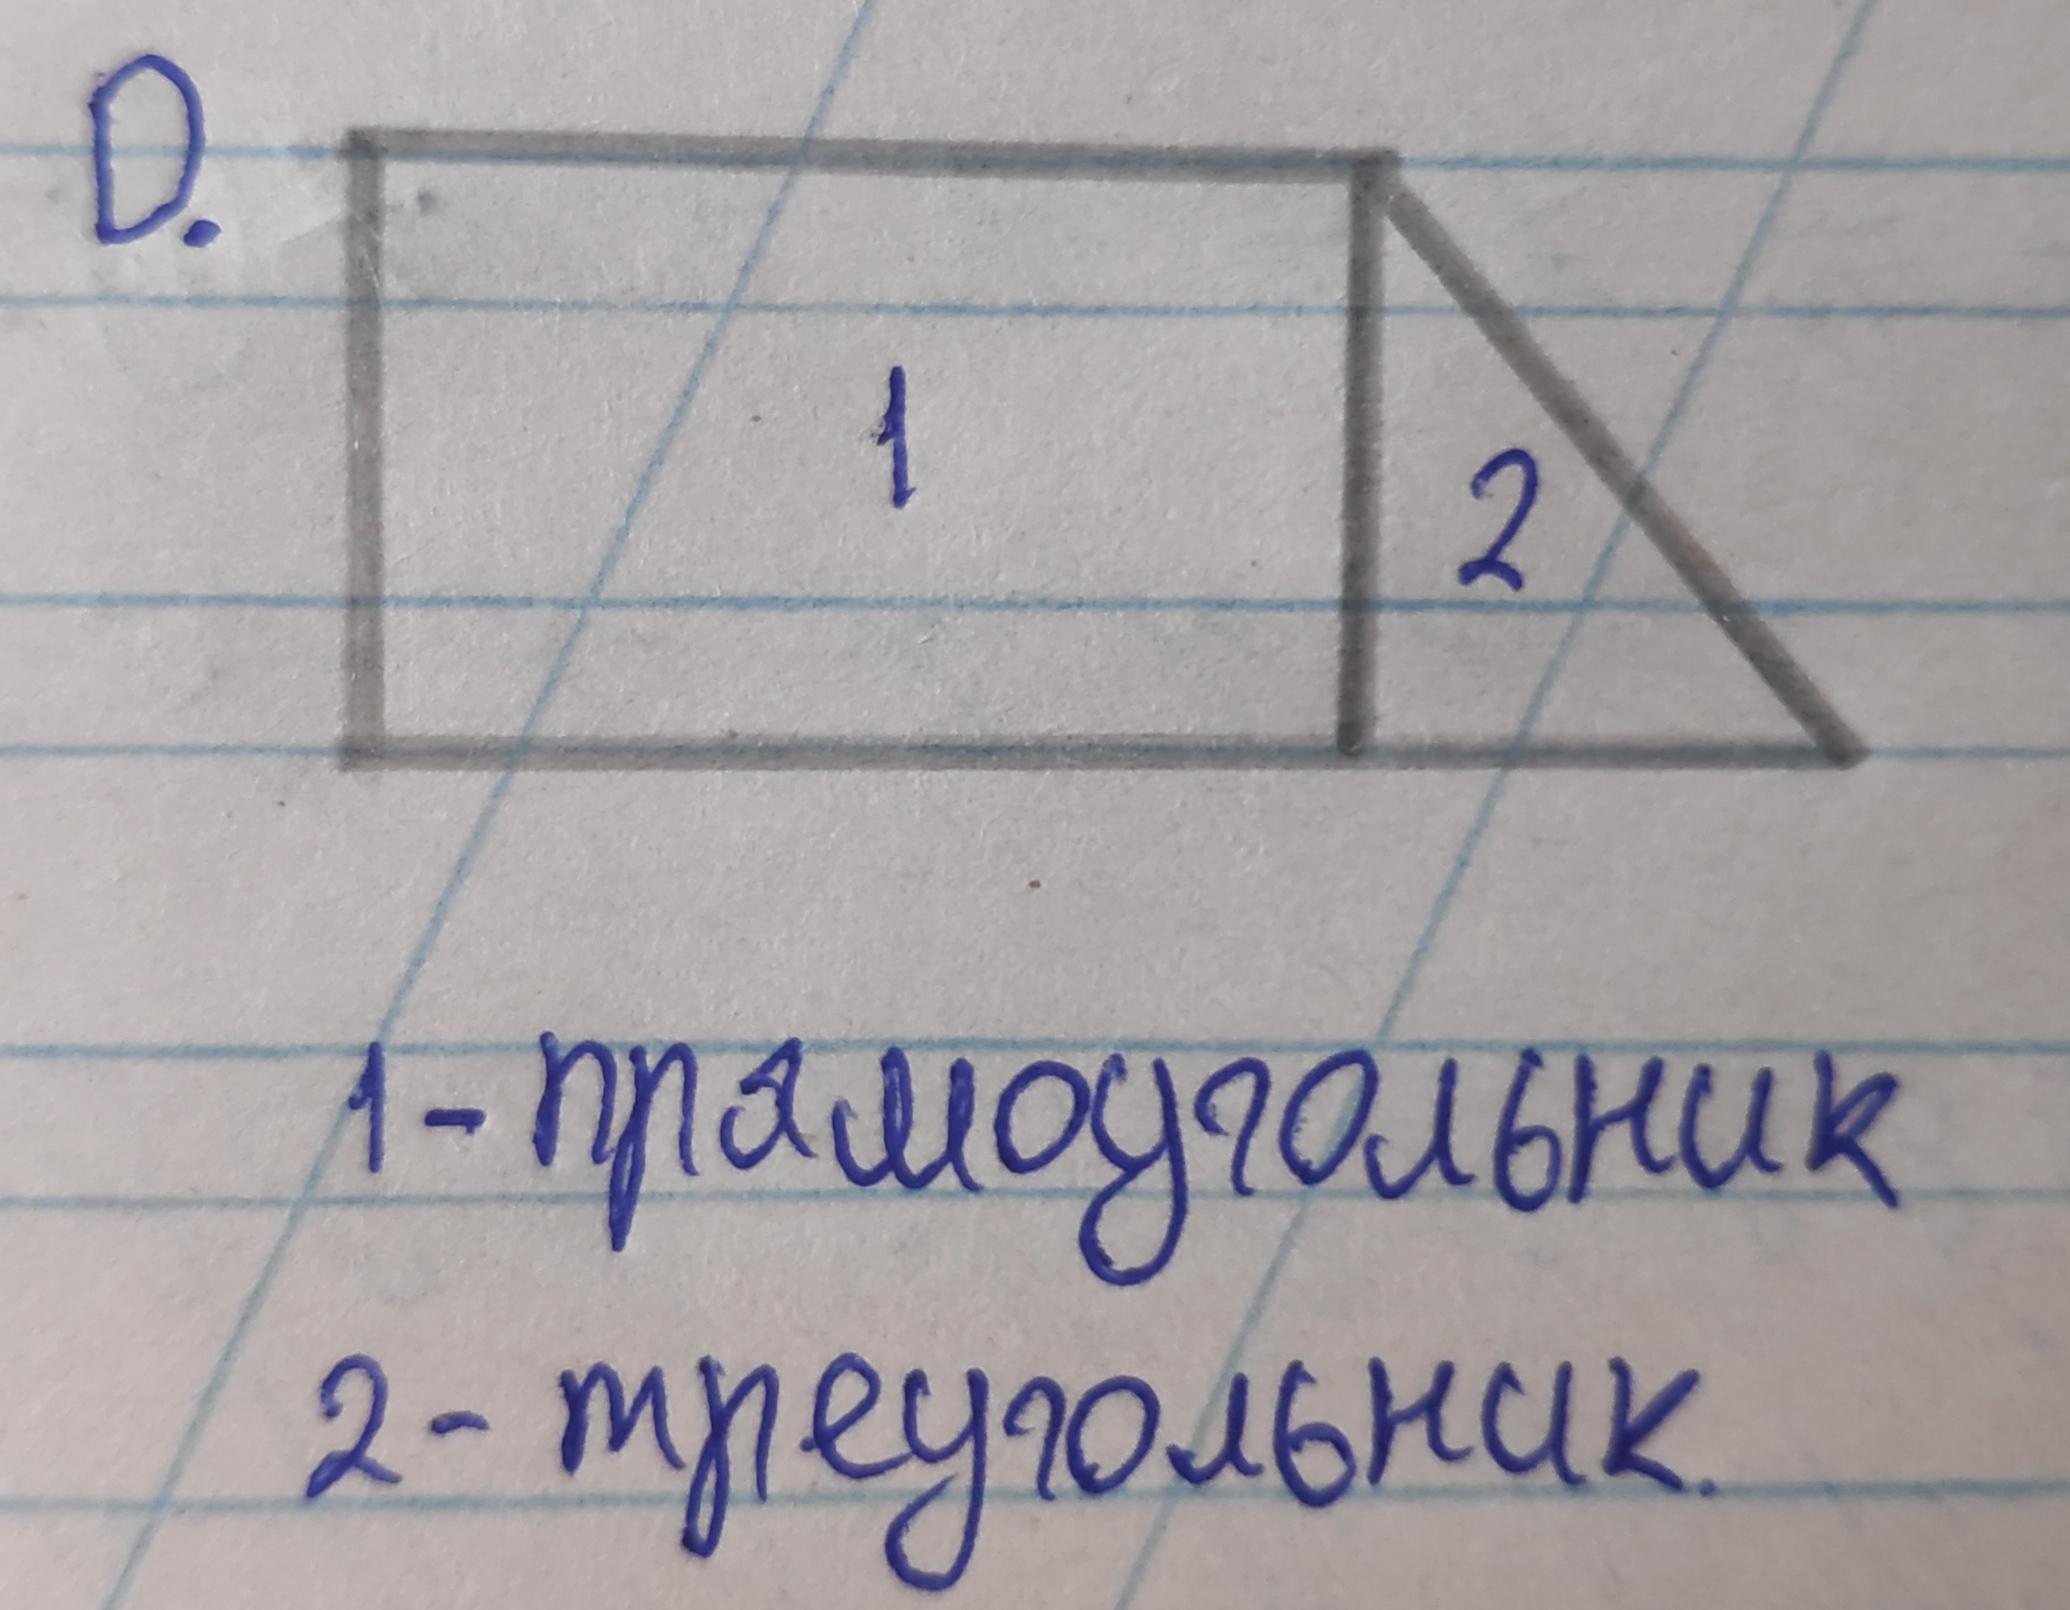 D.
1
2
1 - прямоугольник
2 - треугольник.